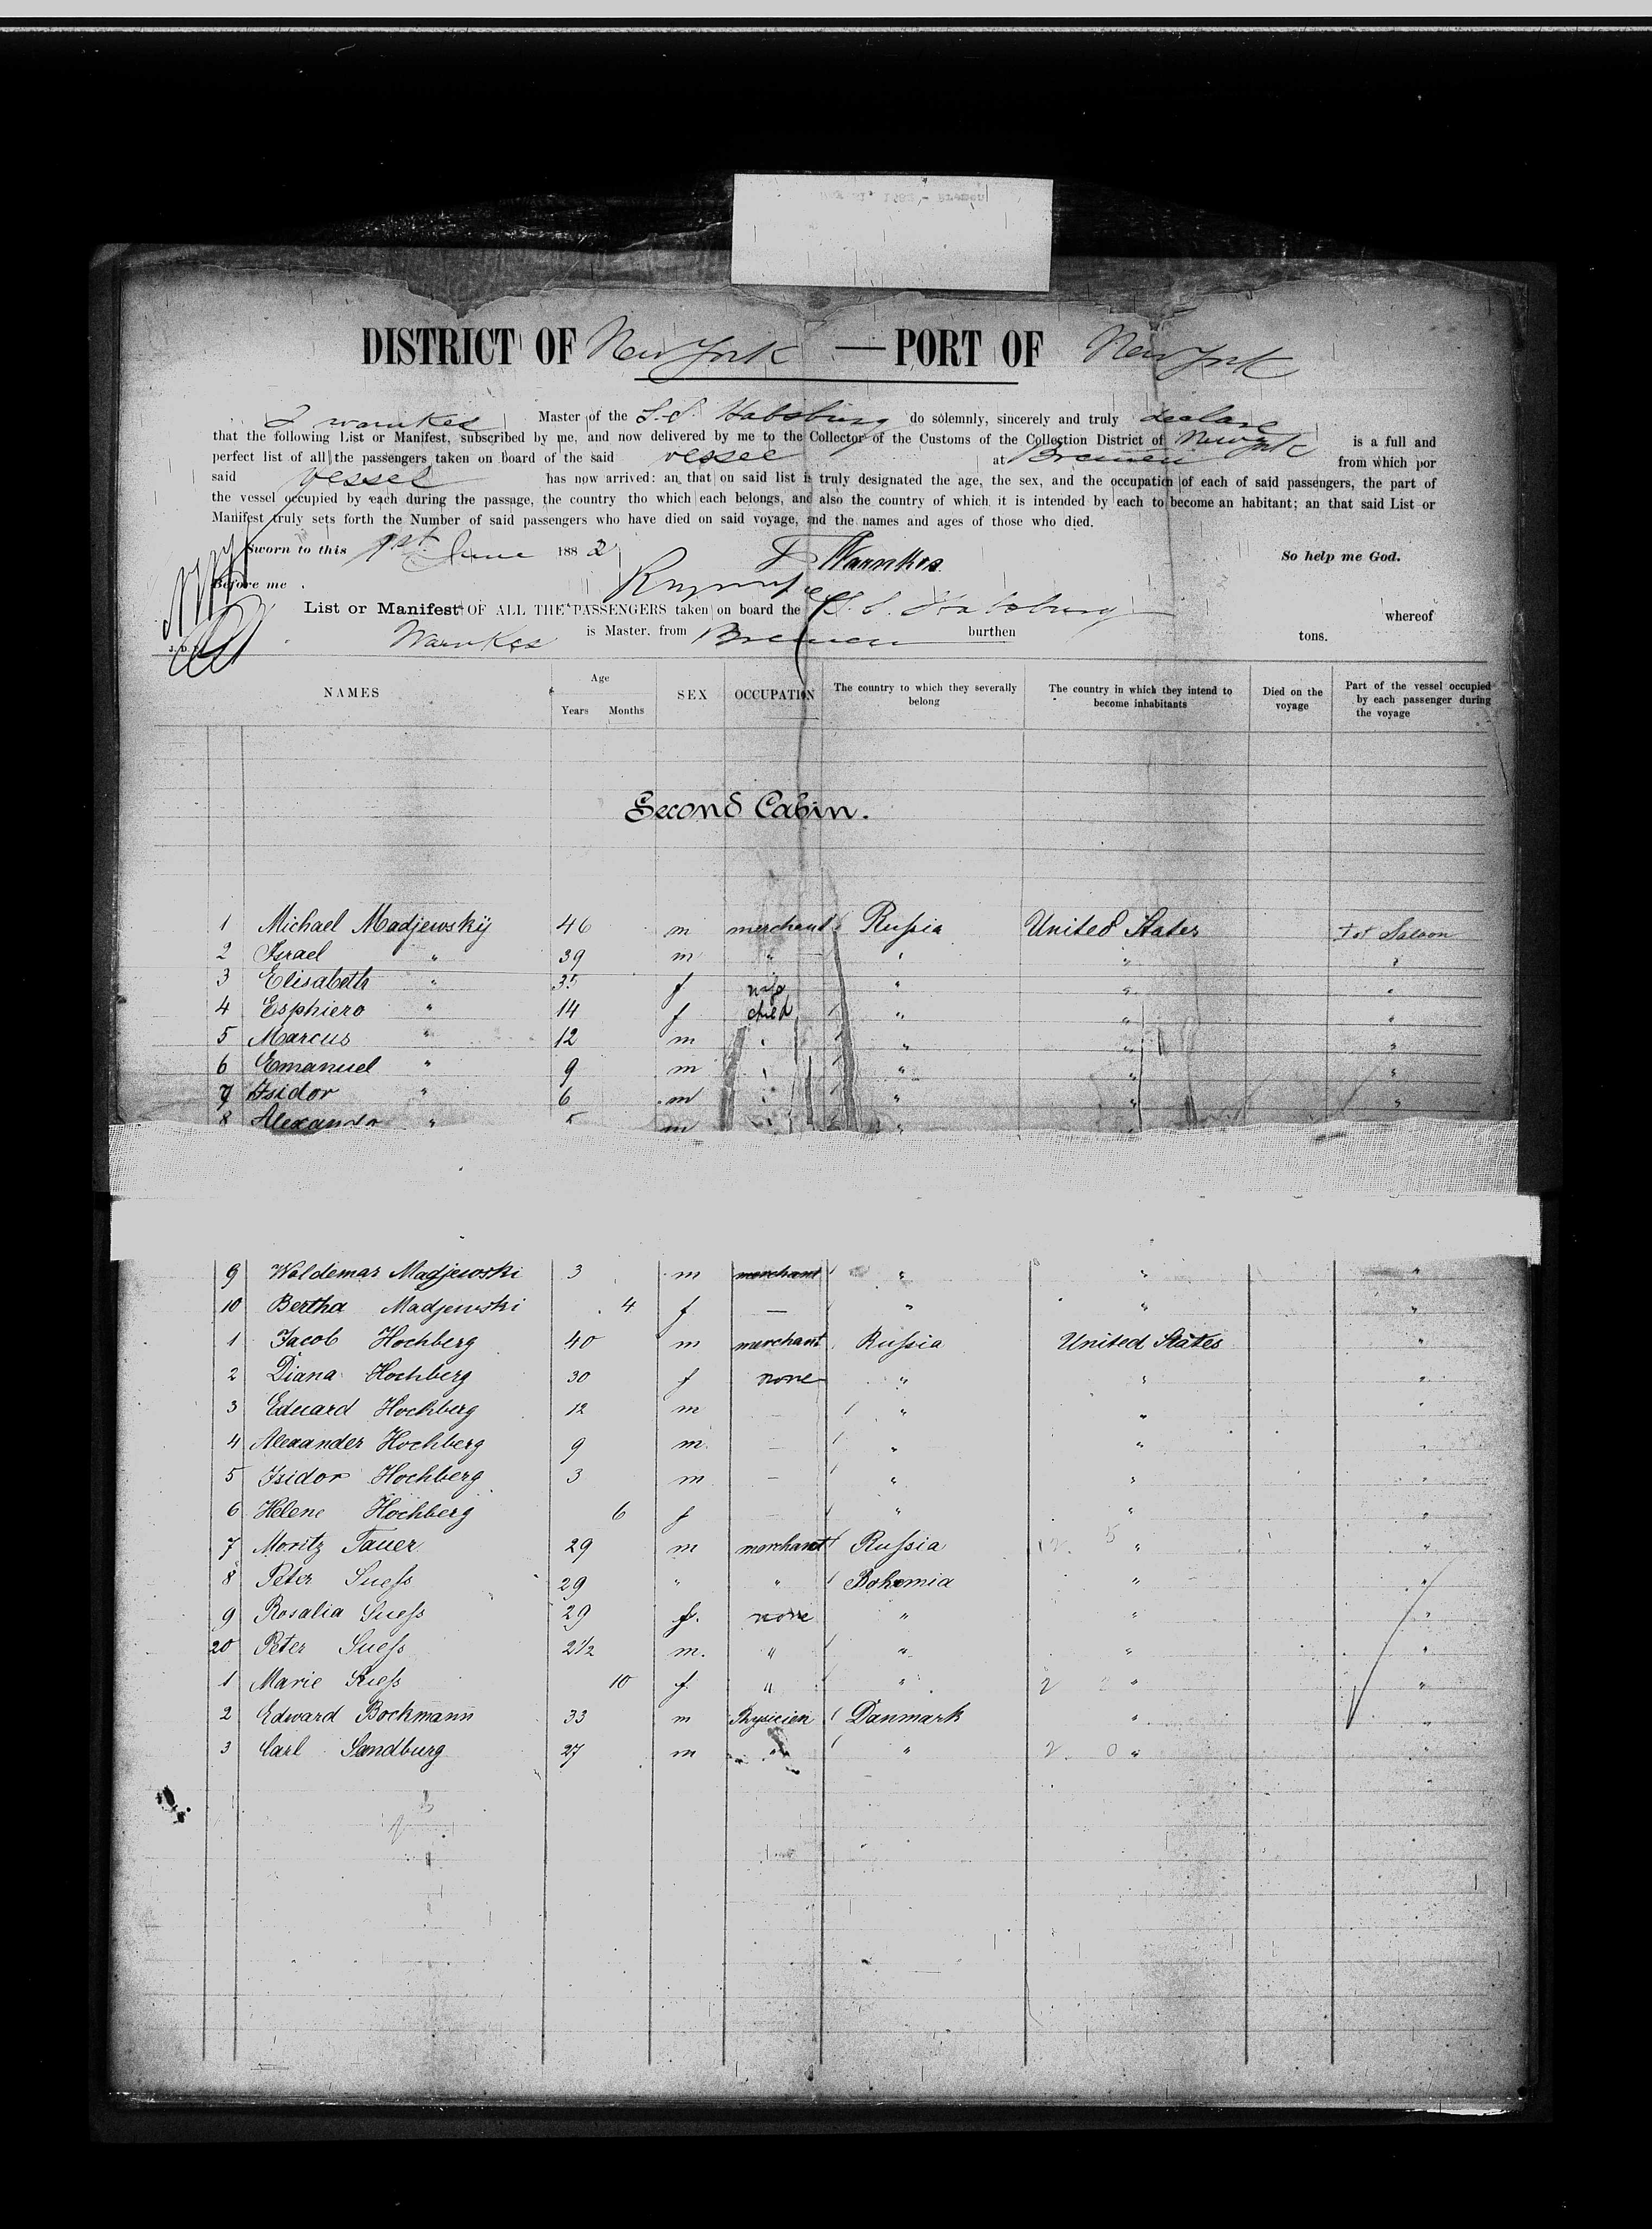 DISTRICT OF New York — PORT OF New York
I Warnkes Master of the S.S. Habsburg do solemnly, sincerely and truly declare
that the following List or Manifest, subscribed by me, and now delivered by me to the Collector of the Customs of the Collection District of New York is a full and
perfect list of all the passengers taken on board of the said vessel at Bremen from which por
said vessel has now arrived: an that on said list is truly designated the age, the sex, and the occupation of each of said passengers, the part of
the vessel occupied by each during the passage, the country tho which each belongs, and also the country of which it is intended by each to become an habitant; an that said List or
Manifest truly sets forth the Number of said passengers who have died on said voyage, and the names and ages of those who died.
Sworn to this 1st June 1882 Warnkes So help me God.
Before me
List or Manifest OF ALL THE PASSENGERS taken on board the S.S. Habsburg whereof
Warnkes is Master, from Bremen burthen tons.
NAMES Age Years Months SEX OCCUPATION The country to which they severally belong The country in which they intend to become inhabitants Died on the voyage Part of the vessel occupied by each passenger during the voyage
Second Cabin.
1 Michael Madjewskij 46 m merchant Russia United States Saloon
2 Israel " 39 m " " " "
3 Elisabeth " 35 f wife " " "
4 Esphiero " 14 f child " " "
5 Marcus " 12 m " " " "
6 Emanuel " 9 m " " " "
7 Isidor " 6 m " " " "
8 Alexander " 5 m " "
9 Waldemar Madjewski 3 m merchant " " "
10 Bertha Madjewski 4 f — " " "
1 Jacob Hochberg 40 m merchant Russia United States "
2 Diana Hochberg 30 f none " " "
3 Eduard Hochberg 12 m — " " "
4 Alexander Hochberg 9 m. — " " "
5 Isidor Hochberg 3 m — " " "
6 Helene Hochberg 6 f — " " "
7 Moritz Tauer 29 m merchant Russia " "
8 Peter Suess 29 " " Bohemia " "
9 Rosalia Suess 29 f. none " " "
20 Peter Suess 2 1/2 m. " " " "
1 Marie Suess 10 f. " " " "
2 Edward Bockmann 33 m Physicien Danmark " "
3 Carl Sandburg 27 m " " " "